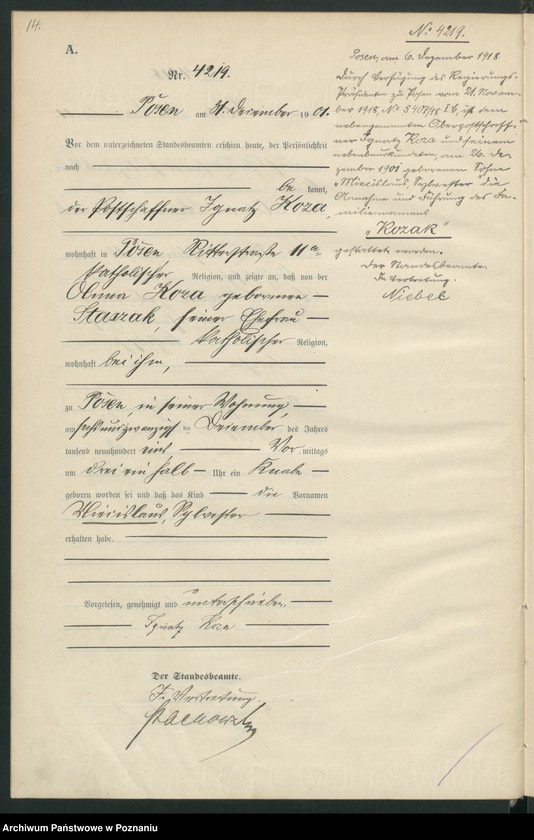 14.
A.
Nr. 4219.
Posen am 31. Dezember 1901.
Vor dem unterzeichneten Standesbeamten erschien heute, der Persönlichkeit
nach
be kannt,
der Postschaffner Ignatz Koza,
wohnhaft in Posen, Ritterstraße 11a
katholischer Religion, und zeigte an, daß von der
Koza geborenen
Staszak, seiner Ehefrau
katholischer Religion,
wohnhaft bei ihm,
zu Posen, in seiner Wohnung,
am sechsundzwanzigsten Dezember des Jahres
tausend neunhundert eins, Vor mittags
um drei ein halb Uhr ein Knabe
geboren worden sei und daß das Kind die Vornamen
Miecislaus, Sylvester
erhalten habe.
Vorgelesen, genehmigt und unterschrieben.
Ignatz Koza
Der Standesbeamte.
In Vertretung
No 4219.
Posen, am 6. Dezember 1918
Durch Verfügung des Regierungs-
Präsidenten zu Posen vom 21. Novem-
ber 1918, No 5407/18 I b, ist dem
nebengenannten Oberpostschaff-
ner Ignatz Koza und seinem
nebenbeurkundeten, am 26. De-
zember 1901 geborenen Sohne
"Miecislaus, Sylvester" die
Annahme und Führung des Fa-
miliennamens
"Kozak"
gestattet worden.
Der Standesbeamte
In Vertretung.
Niebel
Archiwum Państwowe w Poznaniu